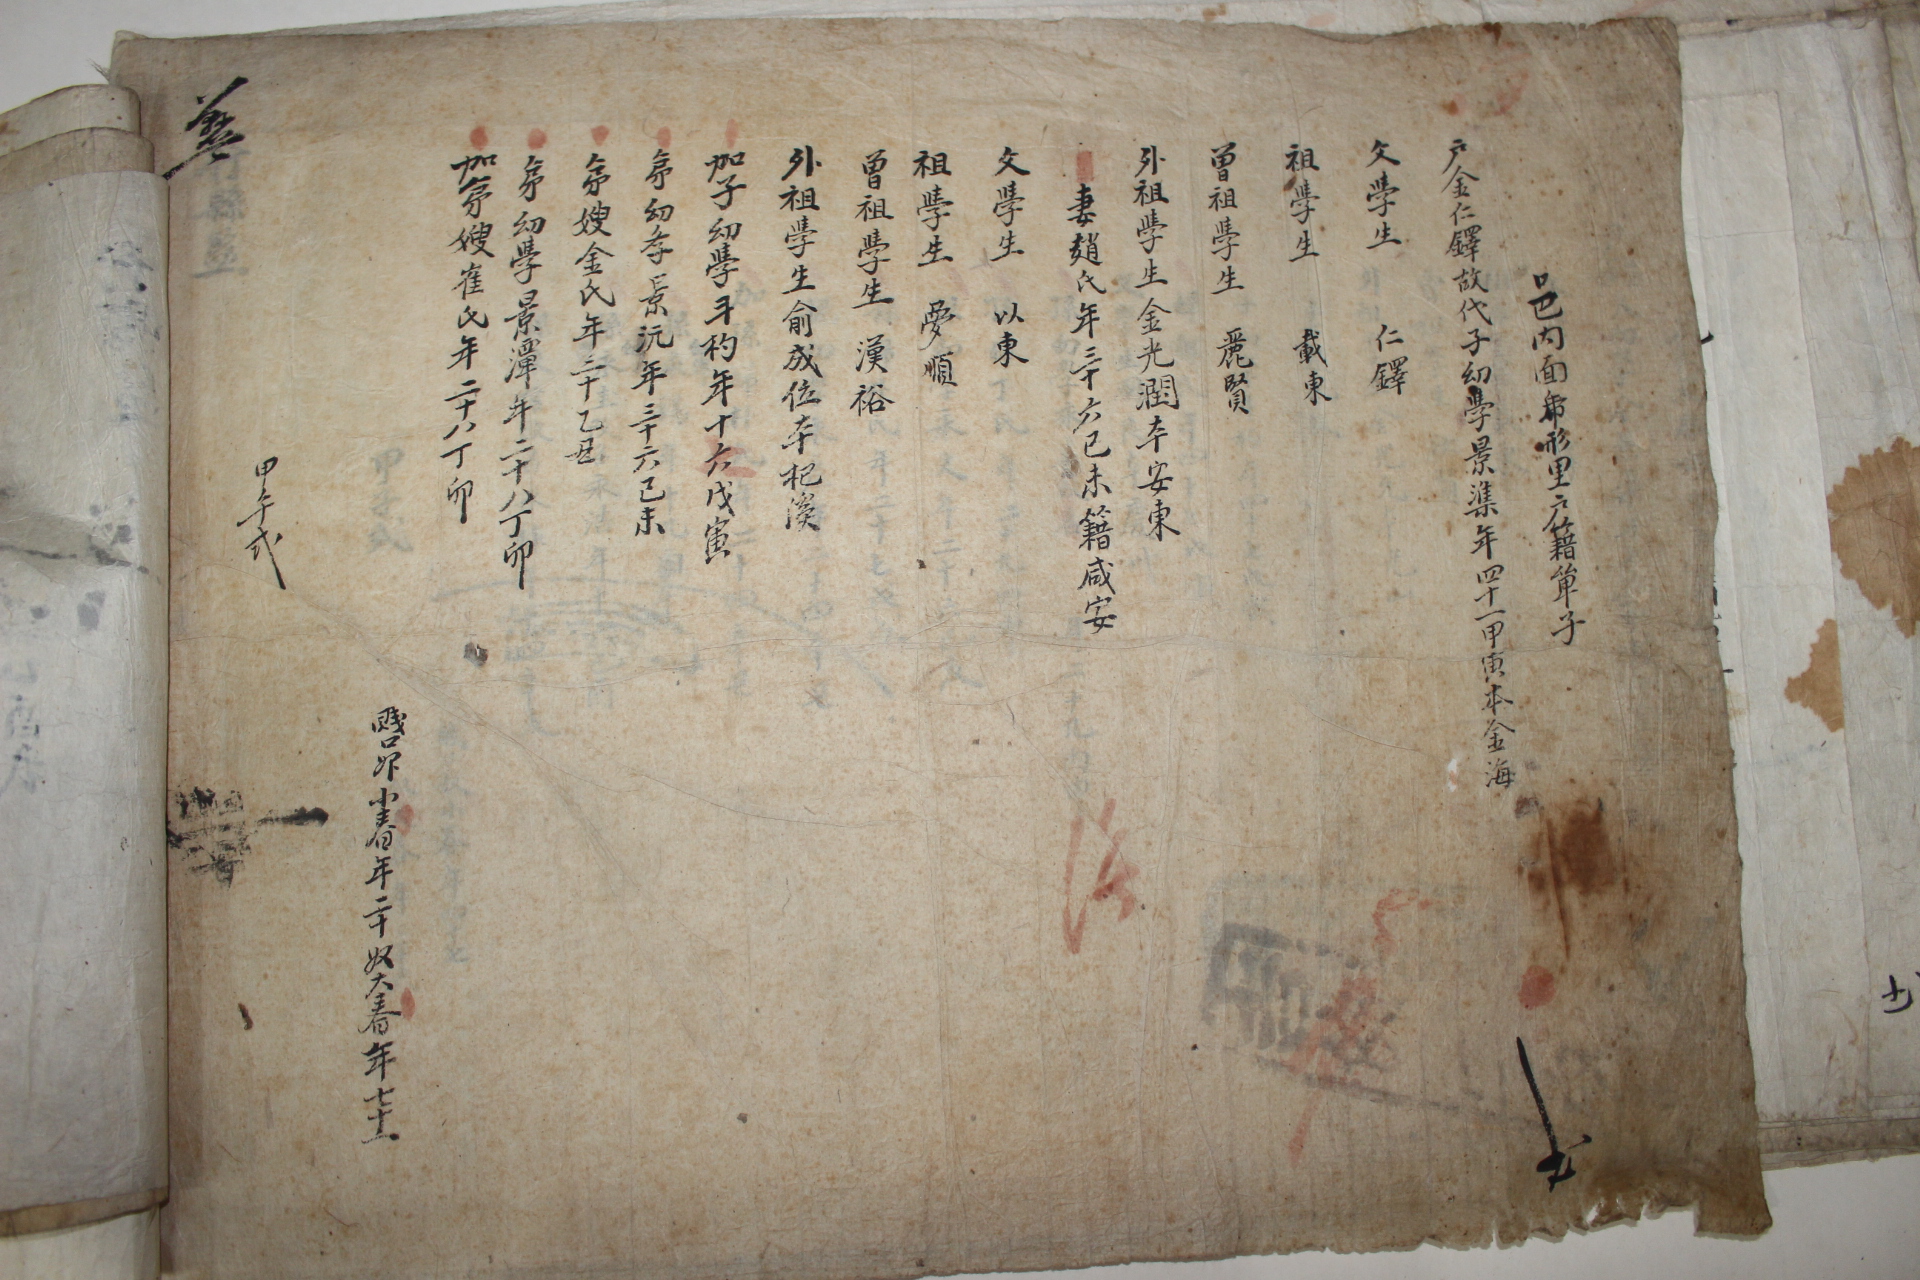 邑內面帝形里戶籍單子
戶金仁鐸故代子幼學景濼年四十一甲寅本金海
父學生 仁鐸
祖學生 載東
曾祖學生 麗賢
外祖學生金光潤本安東
妻趙氏年三十六己未籍咸安
父學生 以東
祖學生 夢順
曾祖學生 漢裕
外祖學生俞成位本杞溪
加子幼學斗杓年十六戊寅
弟幼學景沅年三十六己未
弟嫂金氏年三十乙丑
弟幼學景潭年二十八丁卯
加弟嫂崔氏年二十八丁卯
賤口婢小春年二十奴大春年七十一
甲午式